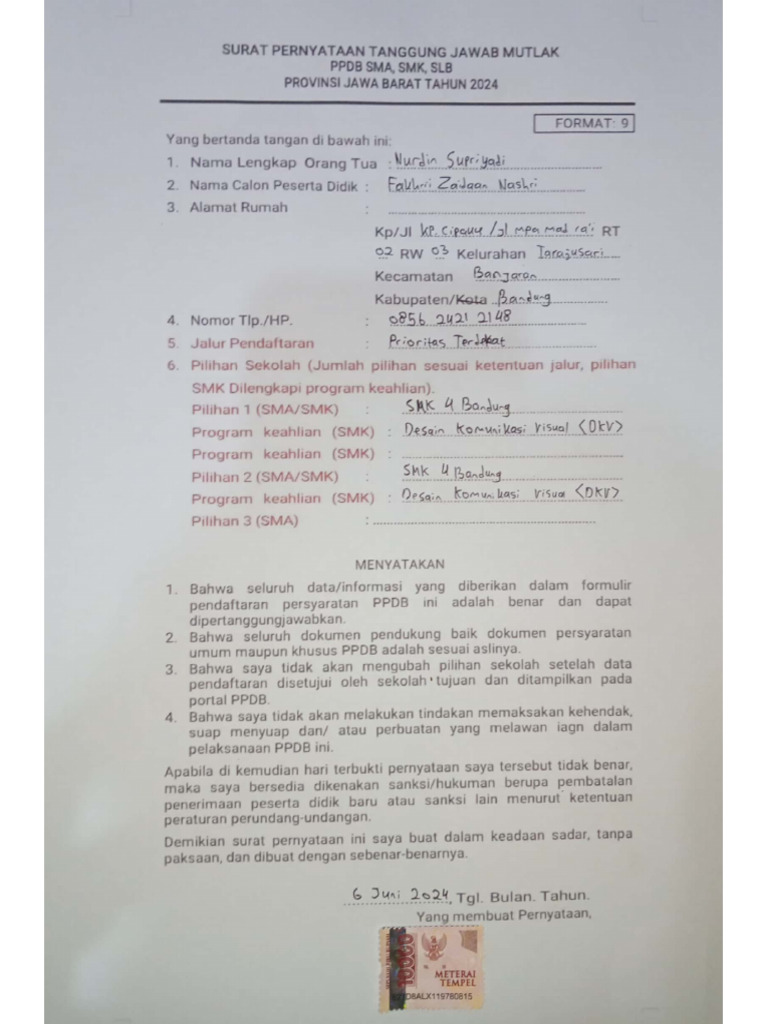 SURAT PERNYATAAN TANGGUNG JAWAB MUTLAK
PPDB SMA, SMK, SLB
PROVINSI JAWA BARAT TAHUN 2024
FORMAT: 9
Yang bertanda tangan di bawah ini:
1. Nama Lengkap Orang Tua : Nurdin Supriyadi
2. Nama Calon Peserta Didik : Fakhrii Zaidaan Nashri
3. Alamat Rumah :
Kp/Jl kp. Cipaku / Jl mpa mad ra'i RT
02 RW 03 Kelurahan Tarajusari
Kecamatan Banjaran
Kabupaten/Kota Bandung
4. Nomor Tlp./HP. : 0856 2421 2148
5. Jalur Pendaftaran : Prioritas Terdekat
6. Pilihan Sekolah (Jumlah pilihan sesuai ketentuan jalur, pilihan
SMK Dilengkapi program keahlian).
Pilihan 1 (SMA/SMK) : SMK 4 Bandung
Program keahlian (SMK) : Desain Komunikasi Visual <DKV>
Program keahlian (SMK) :
Pilihan 2 (SMA/SMK) : SMK 4 Bandung
Program keahlian (SMK) : Desain Komunikasi Visua <DKV>
Pilihan 3 (SMA) :
MENYATAKAN
1. Bahwa seluruh data/informasi yang diberikan dalam formulir
pendaftaran persyaratan PPDB ini adalah benar dan dapat
dipertanggungjawabkan.
2. Bahwa seluruh dokumen pendukung baik dokumen persyaratan
umum maupun khusus PPDB adalah sesuai aslinya.
3. Bahwa saya tidak akan mengubah pilihan sekolah setelah data
pendaftaran disetujui oleh sekolah tujuan dan ditampilkan pada
portal PPDB.
4. Bahwa saya tidak akan melakukan tindakan memaksakan kehendak,
suap menyuap dan/ atau perbuatan yang melawan iagn dalam
pelaksanaan PPDB ini.
Apabila di kemudian hari terbukti pernyataan saya tersebut tidak benar,
maka saya bersedia dikenakan sanksi/hukuman berupa pembatalan
penerimaan peserta didik baru atau sanksi lain menurut ketentuan
peraturan perundang-undangan.
Demikian surat pernyataan ini saya buat dalam keadaan sadar, tanpa
paksaan, dan dibuat dengan sebenar-benarnya.
6 Juni 2024, Tgl. Bulan. Tahun.
Yang membuat Pernyataan,
10000
METERAI
TEMPEL
D8ALX119780815